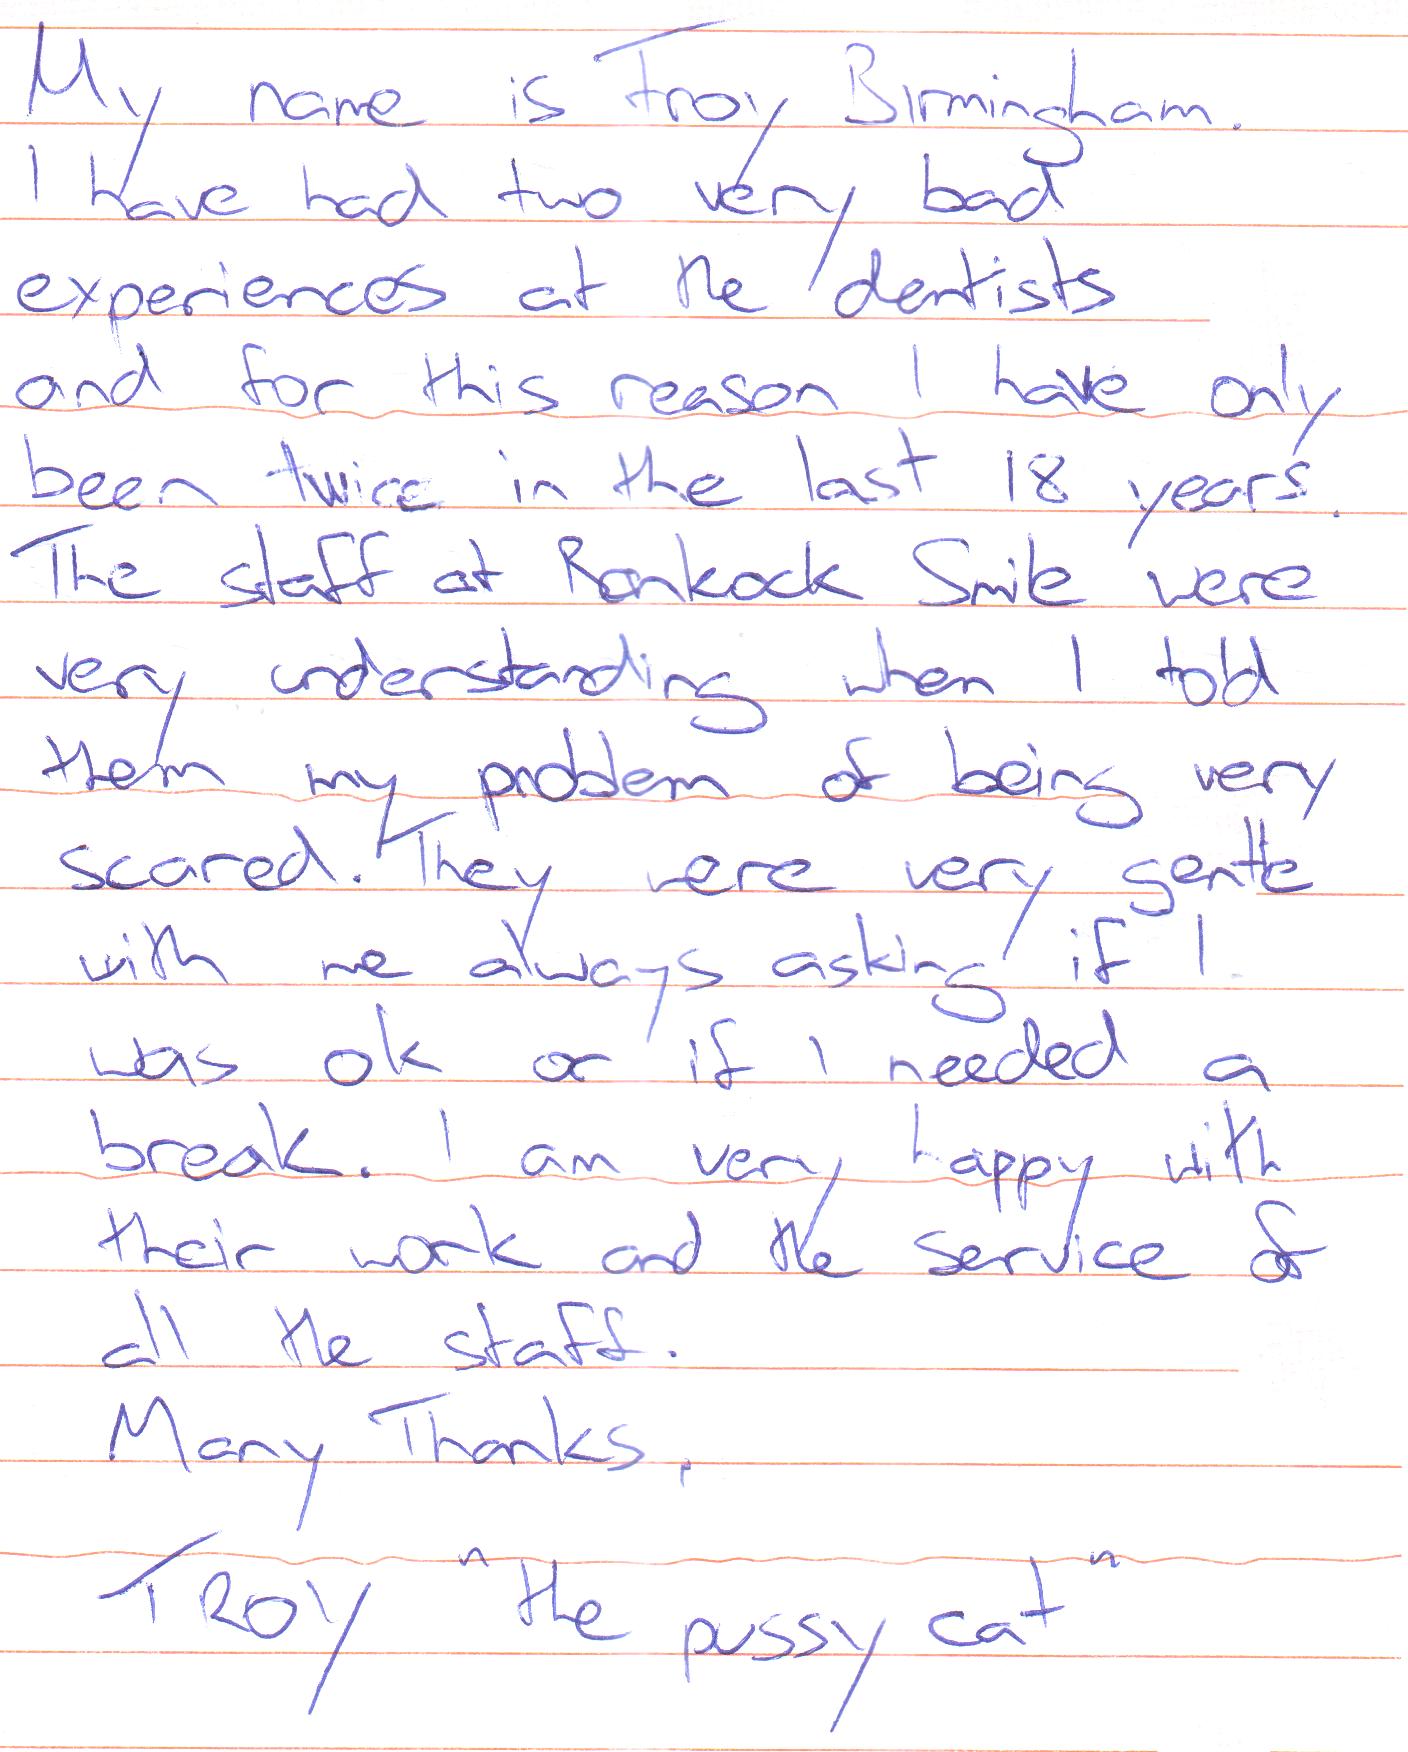 My name is Troy Birmingham.
I have had two very bad
experiences at the dentists
and for this reason I have only
been twice in the last 18 years.
The staff at Bankock Smile were
very understanding when I told
them my problem of being very
scared. They were very gentle
with me always asking if I
was ok or if I needed a
break. I am very happy with
their work and the service of
all the staff.
Many Thanks,
TROY "the pussy cat"